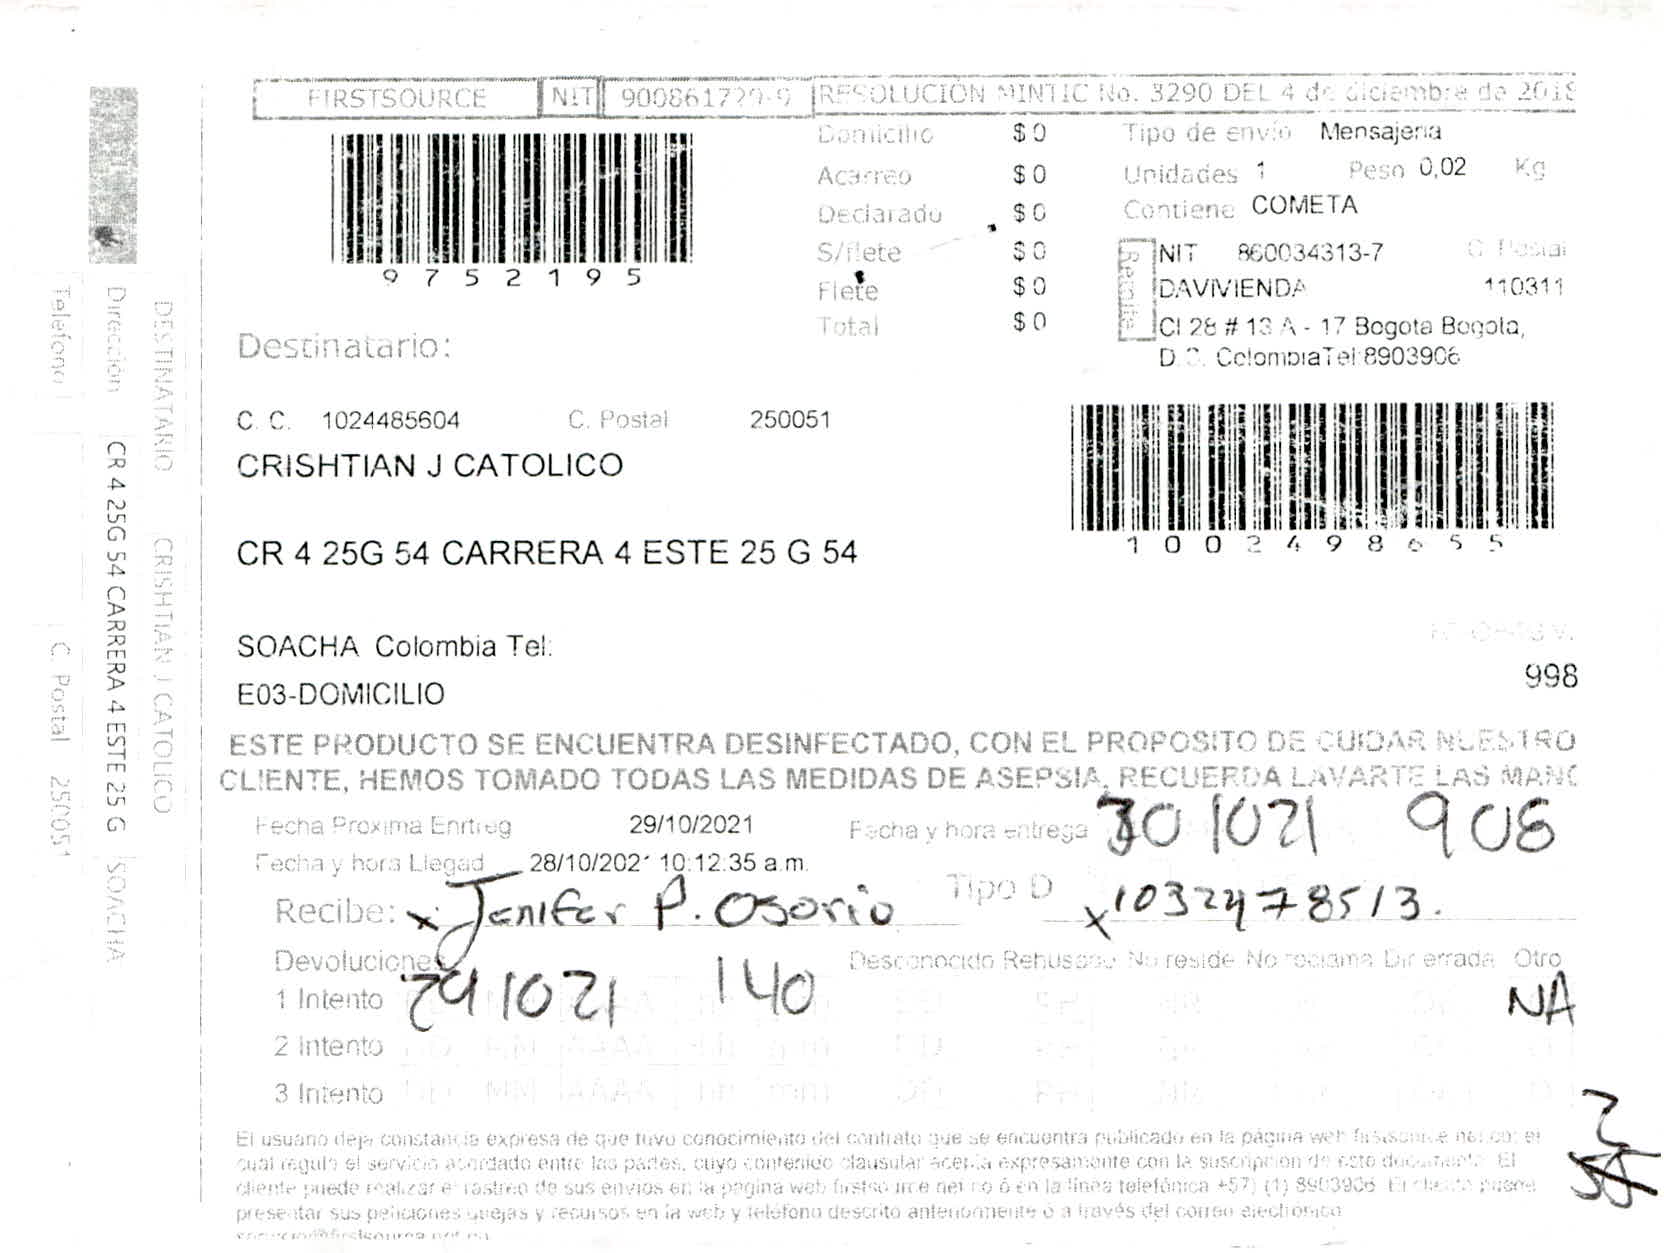 FIRSTSOURCE NIT 900861729-9 RESOLUCIÓN MINTIC No. 3290 DEL 4 de diciembre de 2018
9752195
Domicilio $ 0
Acarreo $ 0
Declarado $ 0
S/flete $ 0
Flete $ 0
Total $ 0
Tipo de envío Mensajeria
Unidades 1 Peso 0,02 Kg
Contiene COMETA
Remite
NIT 8600034313-7 C. Postal
DAVIVIENDA 110311
Cl 28 # 13 A - 17 Bogota Bogota,
D.C. Colombia Tel:8903906
Destinatario:
C. C. 1024485604 C. Postal 250051
CRISHTIAN J CATOLICO
1002498655
CR 4 25G 54 CARRERA 4 ESTE 25 G 54
SOACHA Colombia Tel:
998
E03-DOMICILIO
ESTE PRODUCTO SE ENCUENTRA DESINFECTADO, CON EL PROPOSITO DE CUIDAR NUESTRO
CLIENTE, HEMOS TOMADO TODAS LAS MEDIDAS DE ASEPSIA, RECUERDA LAVARTE LAS MANO
Fecha Proxima Enrtreg 29/10/2021 Fecha y hora entrega 301021 908
Fecha y hora Llegad 28/10/2021 10:12:35 a.m.
Recibe: x Jenifer P. Osorio Tipo D x1032478513.
Devoluciones Desconocido Rehusado No reside No reclama Dir errada Otro
1 Intento 291021 140 NA
2 Intento DD MM AAAA hh mm
3 Intento DD MM AAAA hh mm
El usuario deja constancia expresa de que tuvo conocimiento del contrato que se encuentra publicado en la página web firstsource.net.co; el
cual regula el servicio acordado entre las partes, cuyo contenido clausular acepta expresamente con la suscripción de este documento. El
cliente puede realizar el rastreo de sus envios en la pagina web firstsource.net.co ó en la línea telefónica +57) (1) 8903906 El cliente puede
presentar sus peticiones quejas y recursos en la web y teléfono descrito anteriormente o a través del correo electrónico
DESTINATARIO CRISHTIAN J CATOLICO
Dirección CR 4 25G 54 CARRERA 4 ESTE 25 G SOACHA
Telefono C. Postal 250051